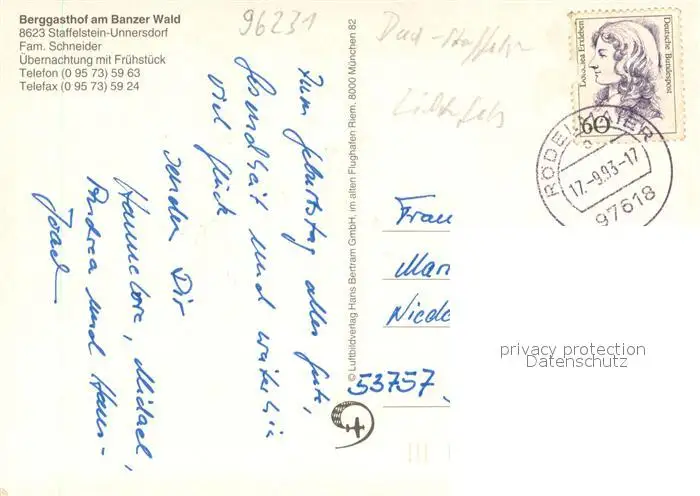 Berggasthof am Banzer Wald
8623 Staffelstein-Unnersdorf
Fam. Schneider
Übernachtung mit Frühstück
Telefon (0 95 73) 59 63
Telefax (0 95 73) 59 24
96231
Zum Geburtstag alles Gute,
Gesundheit und weiterhin
viel Glück
senden Dir
Hannelore, Michael,
Andrea und Hans-
© Luftbildverlag Hans Bertram GmbH, im alten Flughafen Riem, 8000 München 82
Deutsche Bundespost
Dorothea Erxleben
60
RÖDELMAIER
17.-9.93-17
97618
Frau
53757
privacy protection
Datenschutz